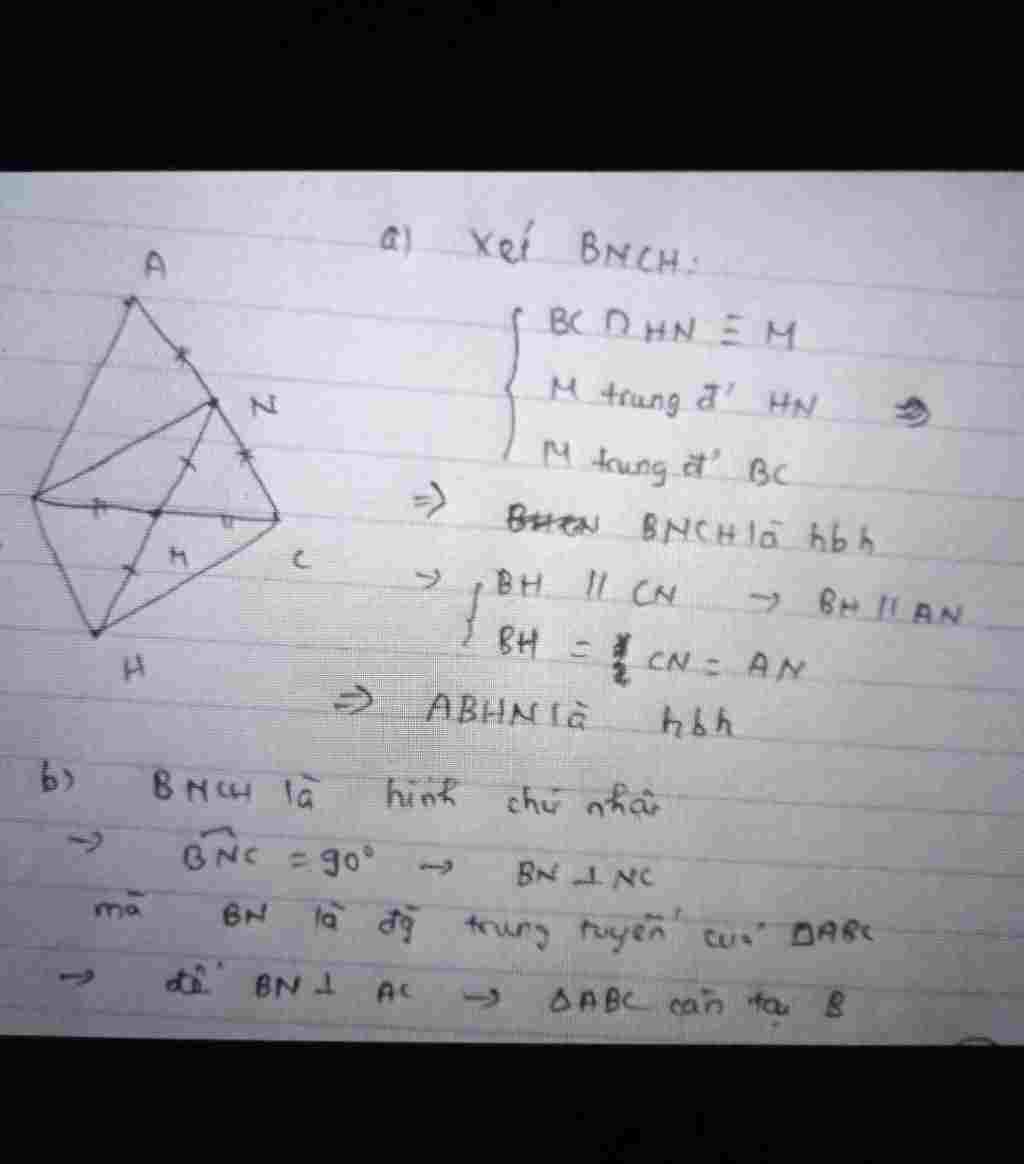 a) Xét BNCH:
A
BC ∩ HN ≡ M
N
M trung đ' HN ⇒
M trung đ' BC
⇒ BNCH là hbh
M
C
→ BH // CN → BH // AN
BH = CN = AN
H
⇒ ABHN là hbh
b) BNCH là hình chữ nhật
→ BNC = 90° → BN ⊥ NC
mà BN là đg trung tuyến của ΔABC
→ để BN ⊥ AC → ΔABC cân tại B